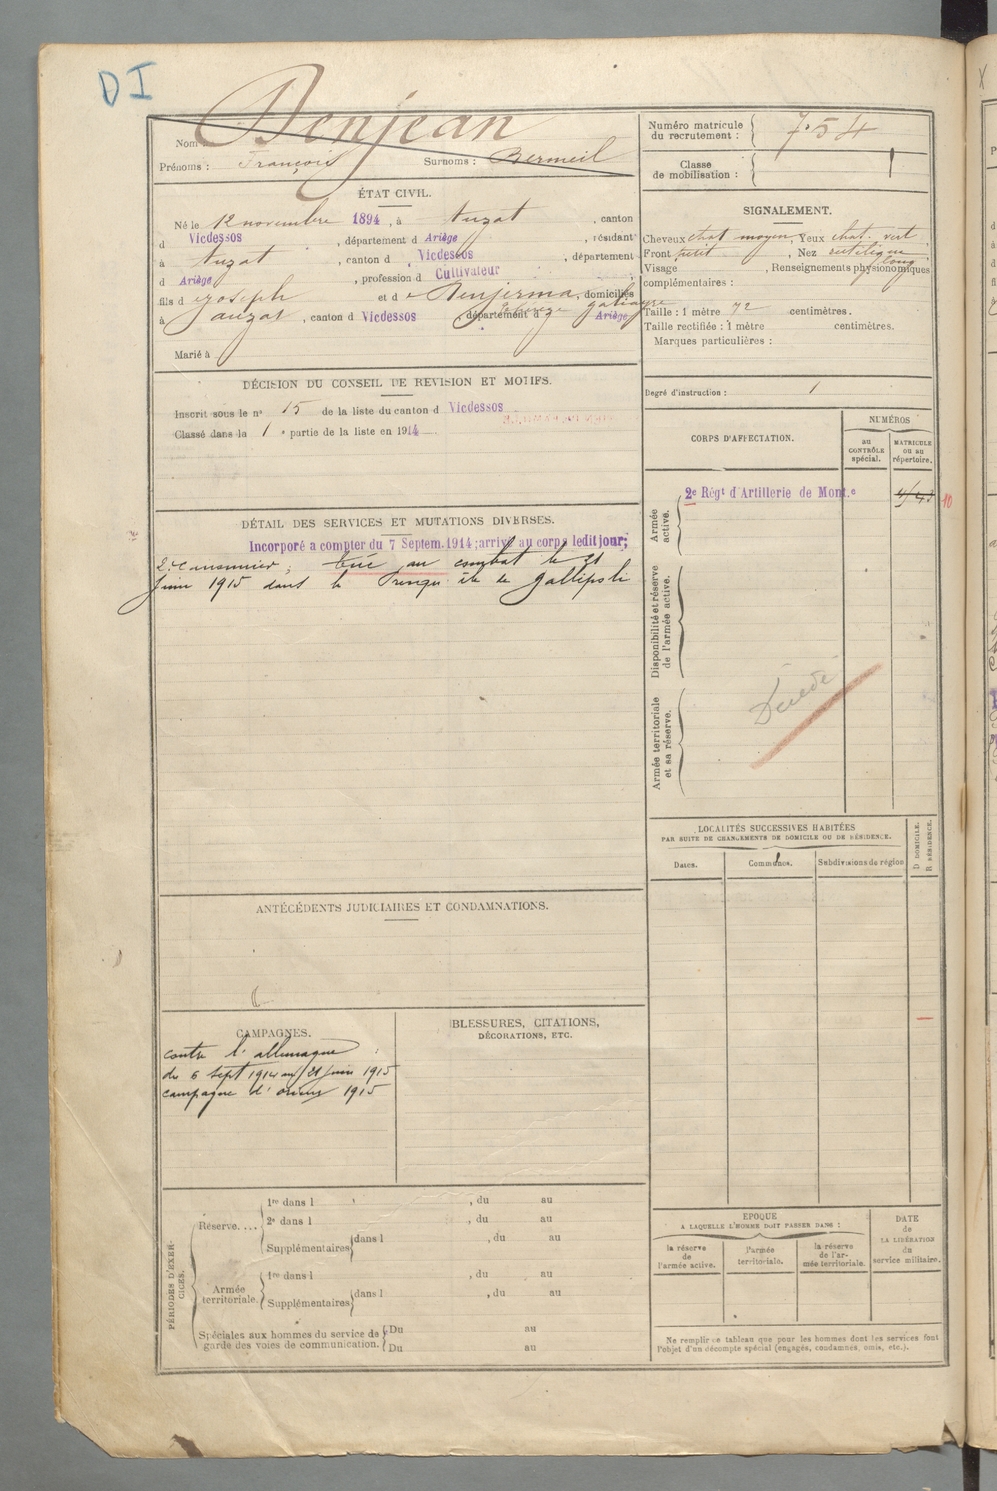 DI
Nom : Denjean
Prénoms : François Surnoms : Bermeil
Numéro matricule du recrutement : 754
Classe de mobilisation :
ÉTAT CIVIL.
Né le 12 novembre 1894, à Auzat, canton
d Vicdessos, département d Ariège, résidant
à Auzat, canton d Vicdessos, département
d Ariège, profession d Cultivateur
fils d Joseph et d e Denjerma, domiciliés
à auzat, canton d Vicdessos, département d Ariège
Marié à
SIGNALEMENT.
Cheveux chat moyen, Yeux chat. vert
Front petit, Nez rectiligne
long
Visage , Renseignements physionomiques
complémentaires :
Taille : 1 mètre 72 centimètres.
Taille rectifiée : 1 mètre centimètres.
Marques particulières :
Degré d'instruction : 1
DÉCISION DU CONSEIL DE REVISION ET MOTIFS.
Inscrit sous le n° 15 de la liste du canton d Vicdessos
Classé dans la 1 e partie de la liste en 1914
CORPS D'AFFECTATION.
NUMÉROS
au CONTRÔLE spécial.
MATRICULE ou au répertoire.
Armée active.
2e Régt d'Artillerie de Mont.e
10
Disponibilité et réserve de l'armée active.
Armée territoriale et sa réserve.
Décédé
DÉTAIL DES SERVICES ET MUTATIONS DIVERSES.
Incorporé a compter du 7 Septem.1914; arrivé au corps ledit jour;
2e Canonnier; tué au combat le 21
Juin 1915 dans la Presqu'île de Gallipoli
LOCALITÉS SUCCESSIVES HABITÉES
PAR SUITE DE CHANGEMENTS DE DOMICILE OU DE RÉSIDENCE.
Dates. Communes. Subdivisions de région
D DOMICILE. R RÉSIDENCE.
ANTÉCÉDENTS JUDICIAIRES ET CONDAMNATIONS.
CAMPAGNES.
contre l'allemagne
du 6 sept 1914 au 21 juin 1915
campagne d'orient 1915
BLESSURES, CITATIONS,
DÉCORATIONS, ETC.
PÉRIODES D'EXERCICES.
Réserve....
1re dans l , du au
2e dans l , du au
Supplémentaires dans l , du au
Armée territoriale.
1re dans l , du au
Supplémentaires dans l , du au
Spéciales aux hommes du service de garde des voies de communication.
Du au
Du au
EPOQUE
A LAQUELLE L'HOMME DOIT PASSER DANS :
la réserve de l'armée active.
l'armée territoriale.
la réserve de l'armée territoriale.
DATE de LA LIBÉRATION du service militaire.
Ne remplir ce tableau que pour les hommes dont les services font
l'objet d'un décompte spécial (engagés, condamnés, omis, etc.).